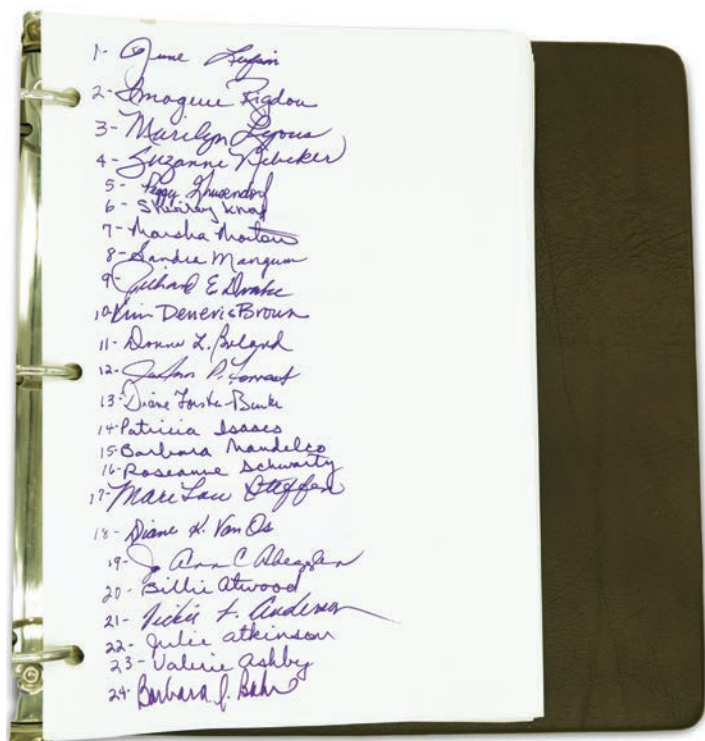 1- June
2- Imogene Rigdon
3- Marilyn Lyons
4- Suzanne Nebeker
5- Peggy
6- Knap
7- Marsha Morton
8- Sandra Mangum
9- Richard E Drake
10- Kim Deneris Brown
11- Donna L. Boland
12- JoAnn P.
13- Diane Forster-Burke
14- Patricia Isaacs
15- Barbara Mandleco
16- Roseanne Schwartz
17- Mari Lou Steffen
18- Diane K. Van Os
19- Jo Ann C Abegglen
20- Billie Atwood
21- Vickie L. Anderson
22- Julie Atkinson
23- Valerie Ashby
24- Barbara J. Bahr